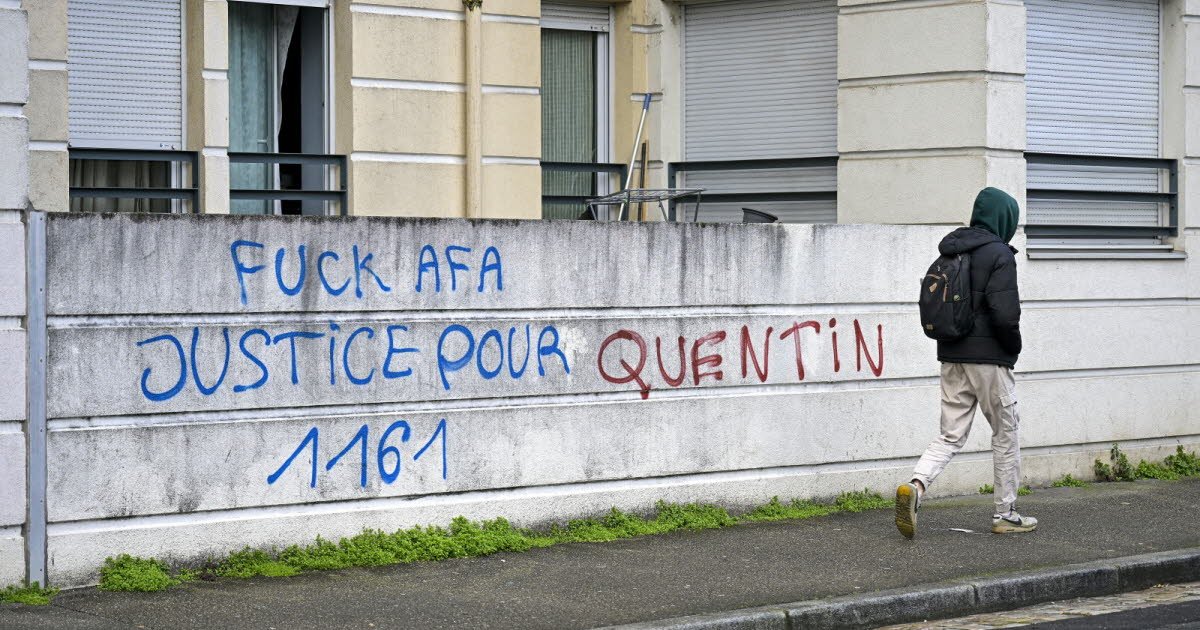 FUCK AFA
JUSTICE POUR QUENTIN
1161